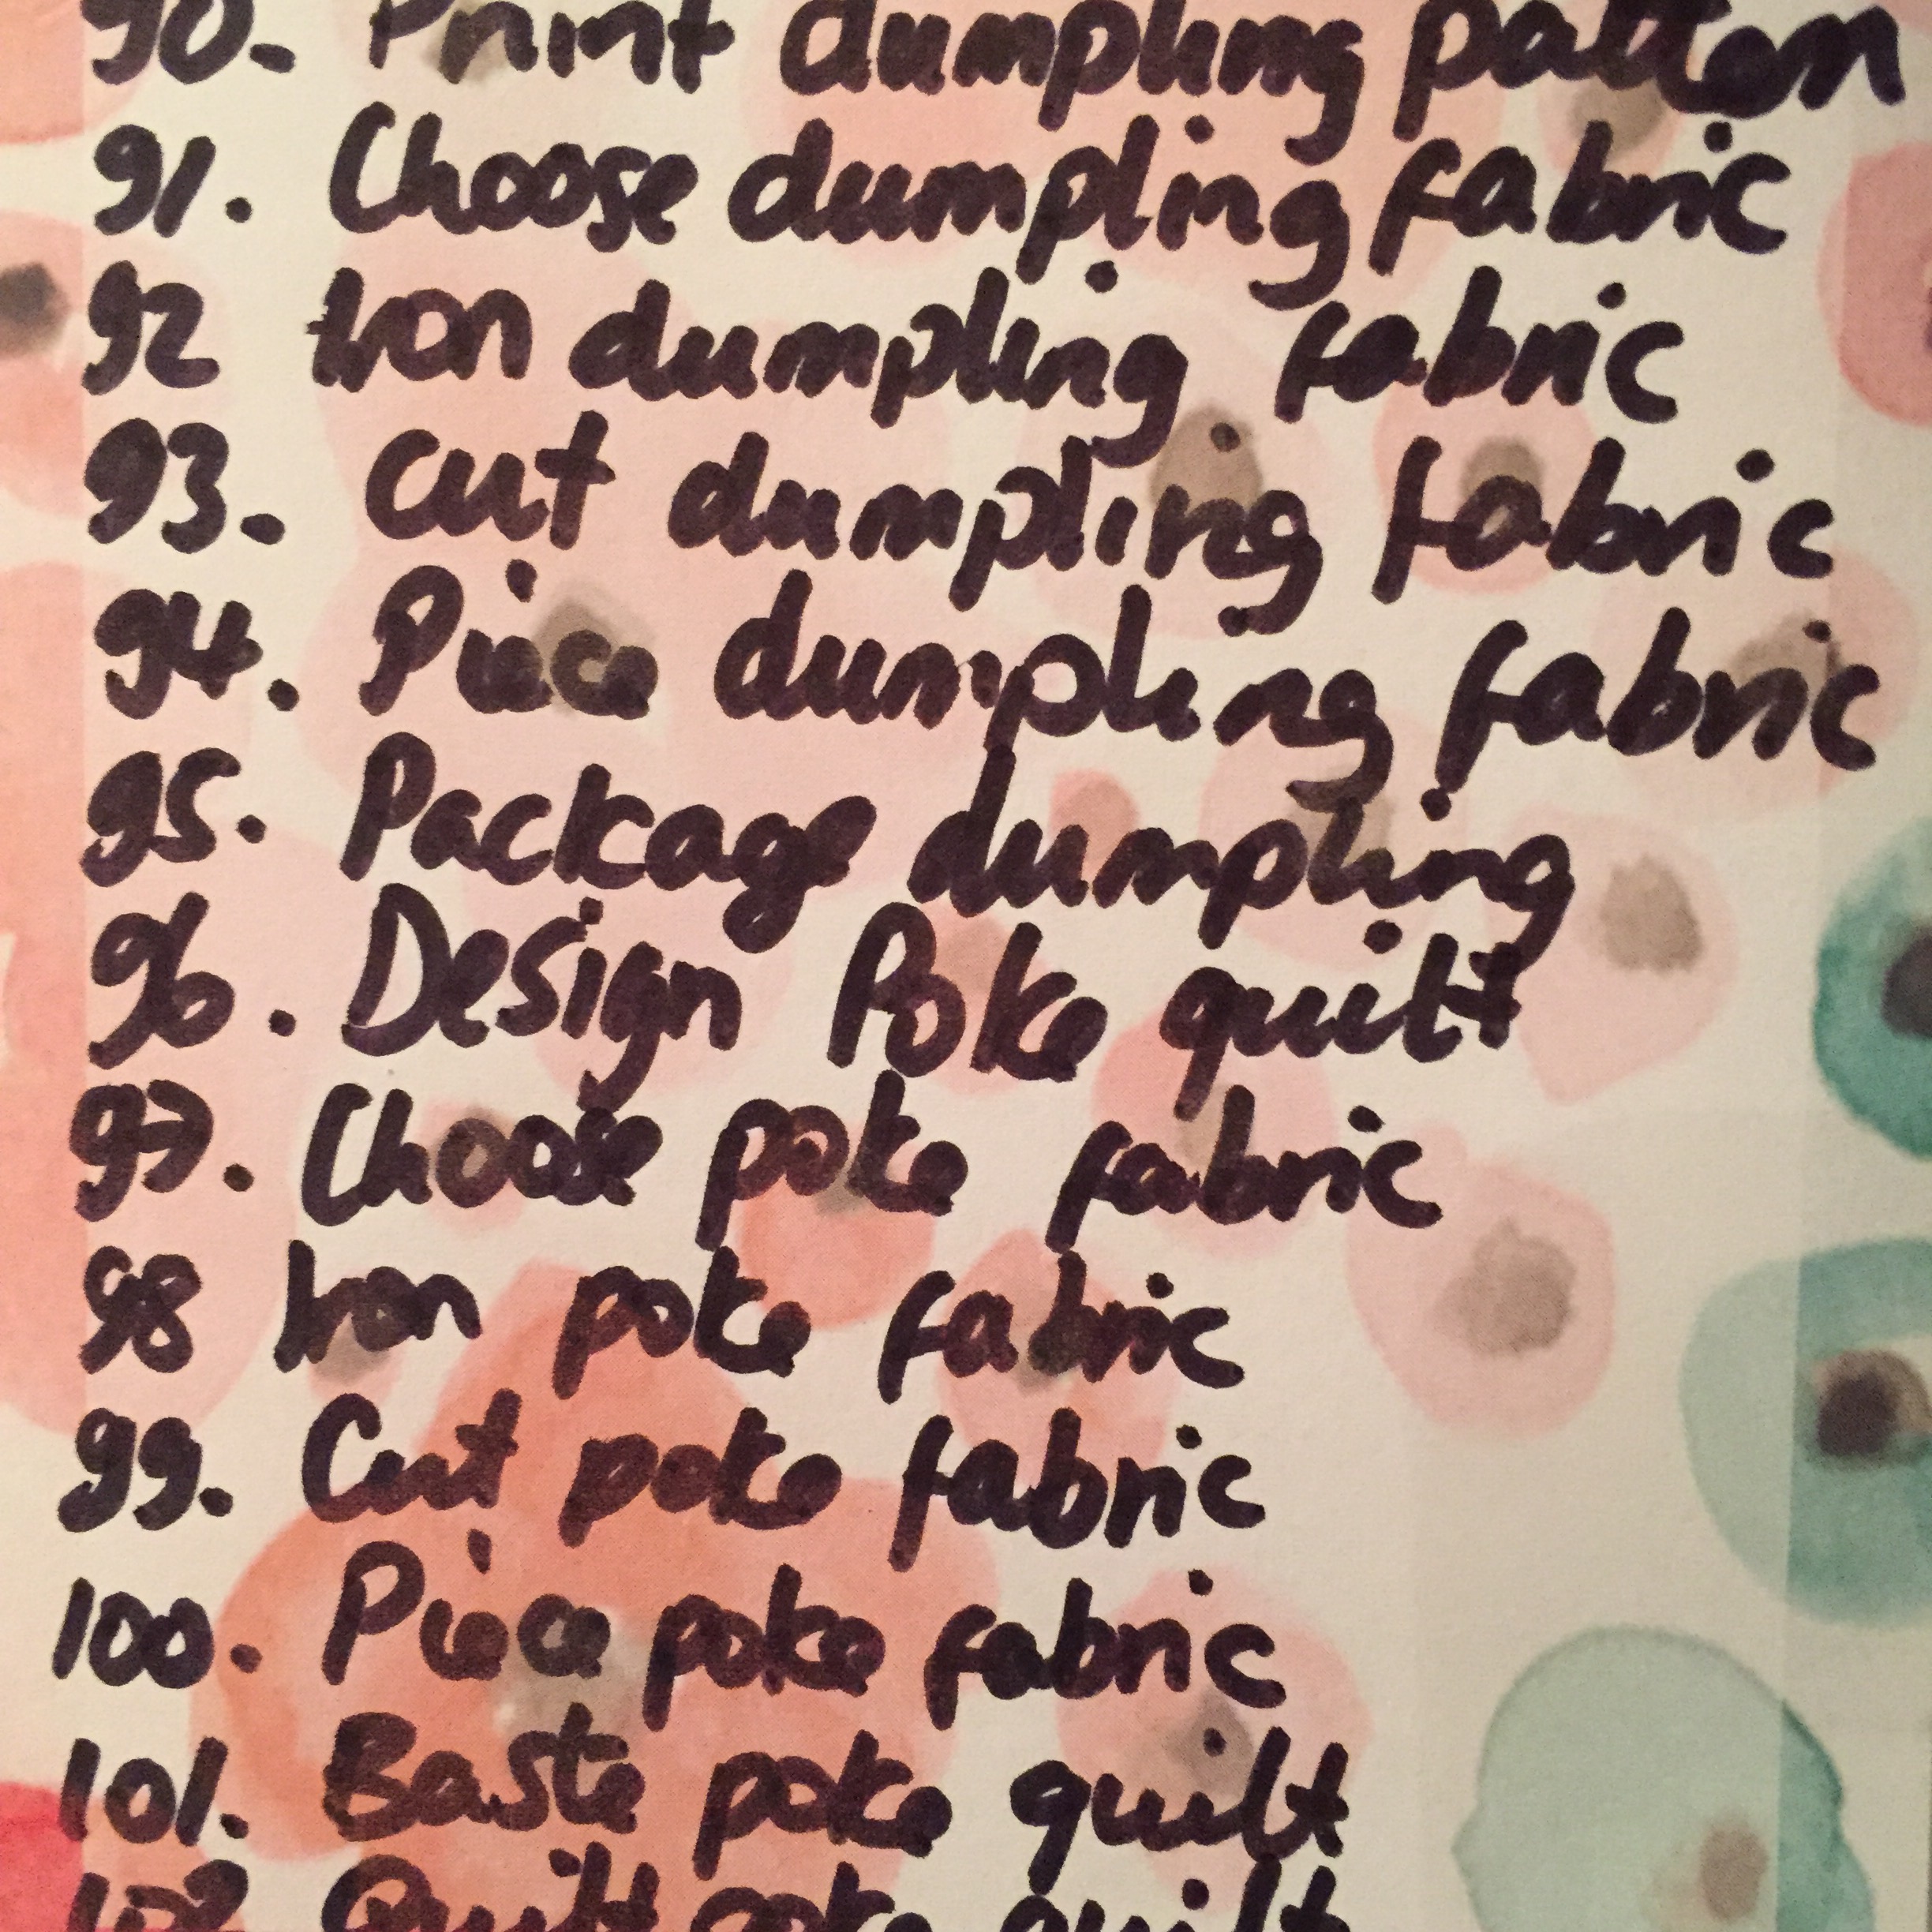 90. Print dumpling pattern
91. Choose dumpling fabric
92 Iron dumpling fabric
93. Cut dumpling fabric
94. Piece dumpling fabric
95. Package dumpling
96. Design Poke quilt
97. Choose poke fabric
98 Iron poke fabric
99. Cut poke fabric
100. Piece poke fabric
101. Baste poke quilt
102. Quilt poke quilt